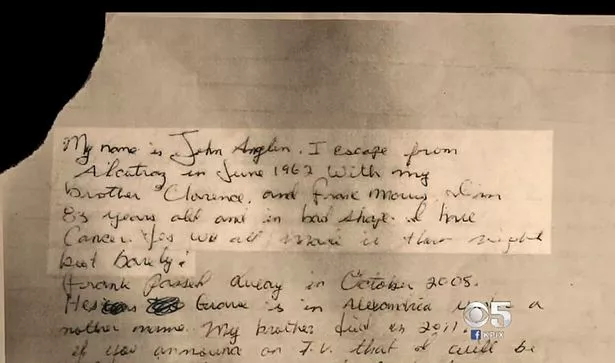 My name is John Anglin. I escape from
Alcatraz in June 1962 With my
brother Clarence, and Frank Morris. I'm
83 years old and in bad shape. I have
Cancer. Yes we all made it that night
but barely!
Frank passed away in October 2008.
His Grave is in Alexandria under a
nother name. My brother died in 2011.
if you announce on T.V. that I will be
5
KPIX